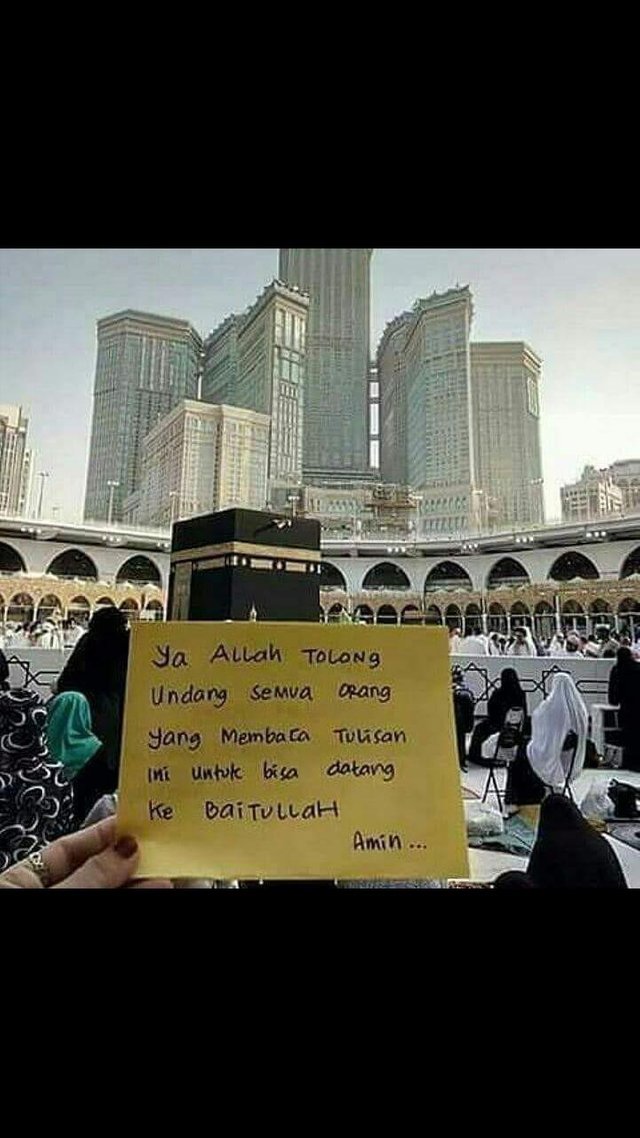 Ya ALLah TOLONG
Undang SEMUA ORANG
Yang MEMbaCa TULISAN
INI UNTUK bisa datang
KE BaiTULLAH
AMIN...